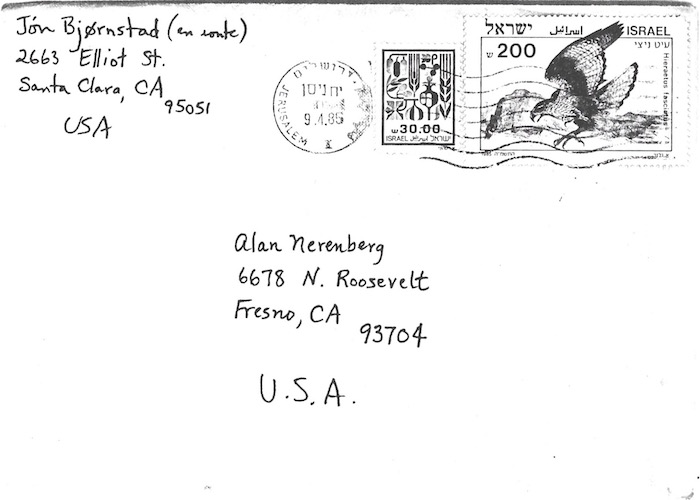 Jón Bjørnstad (en route)
2663 Elliot St.
Santa Clara, CA
95051
USA
ירושלים
יח ניסן
9.4.85
JERUSALEM
ש 30.00
ISRAEL اسرائيل ישראל
ישראל اسرائيل ISRAEL
ש 200
עיט ניצי
Hieraetus fasciatus
Alan Nerenberg
6678 N. Roosevelt
Fresno, CA
93704
U.S.A.